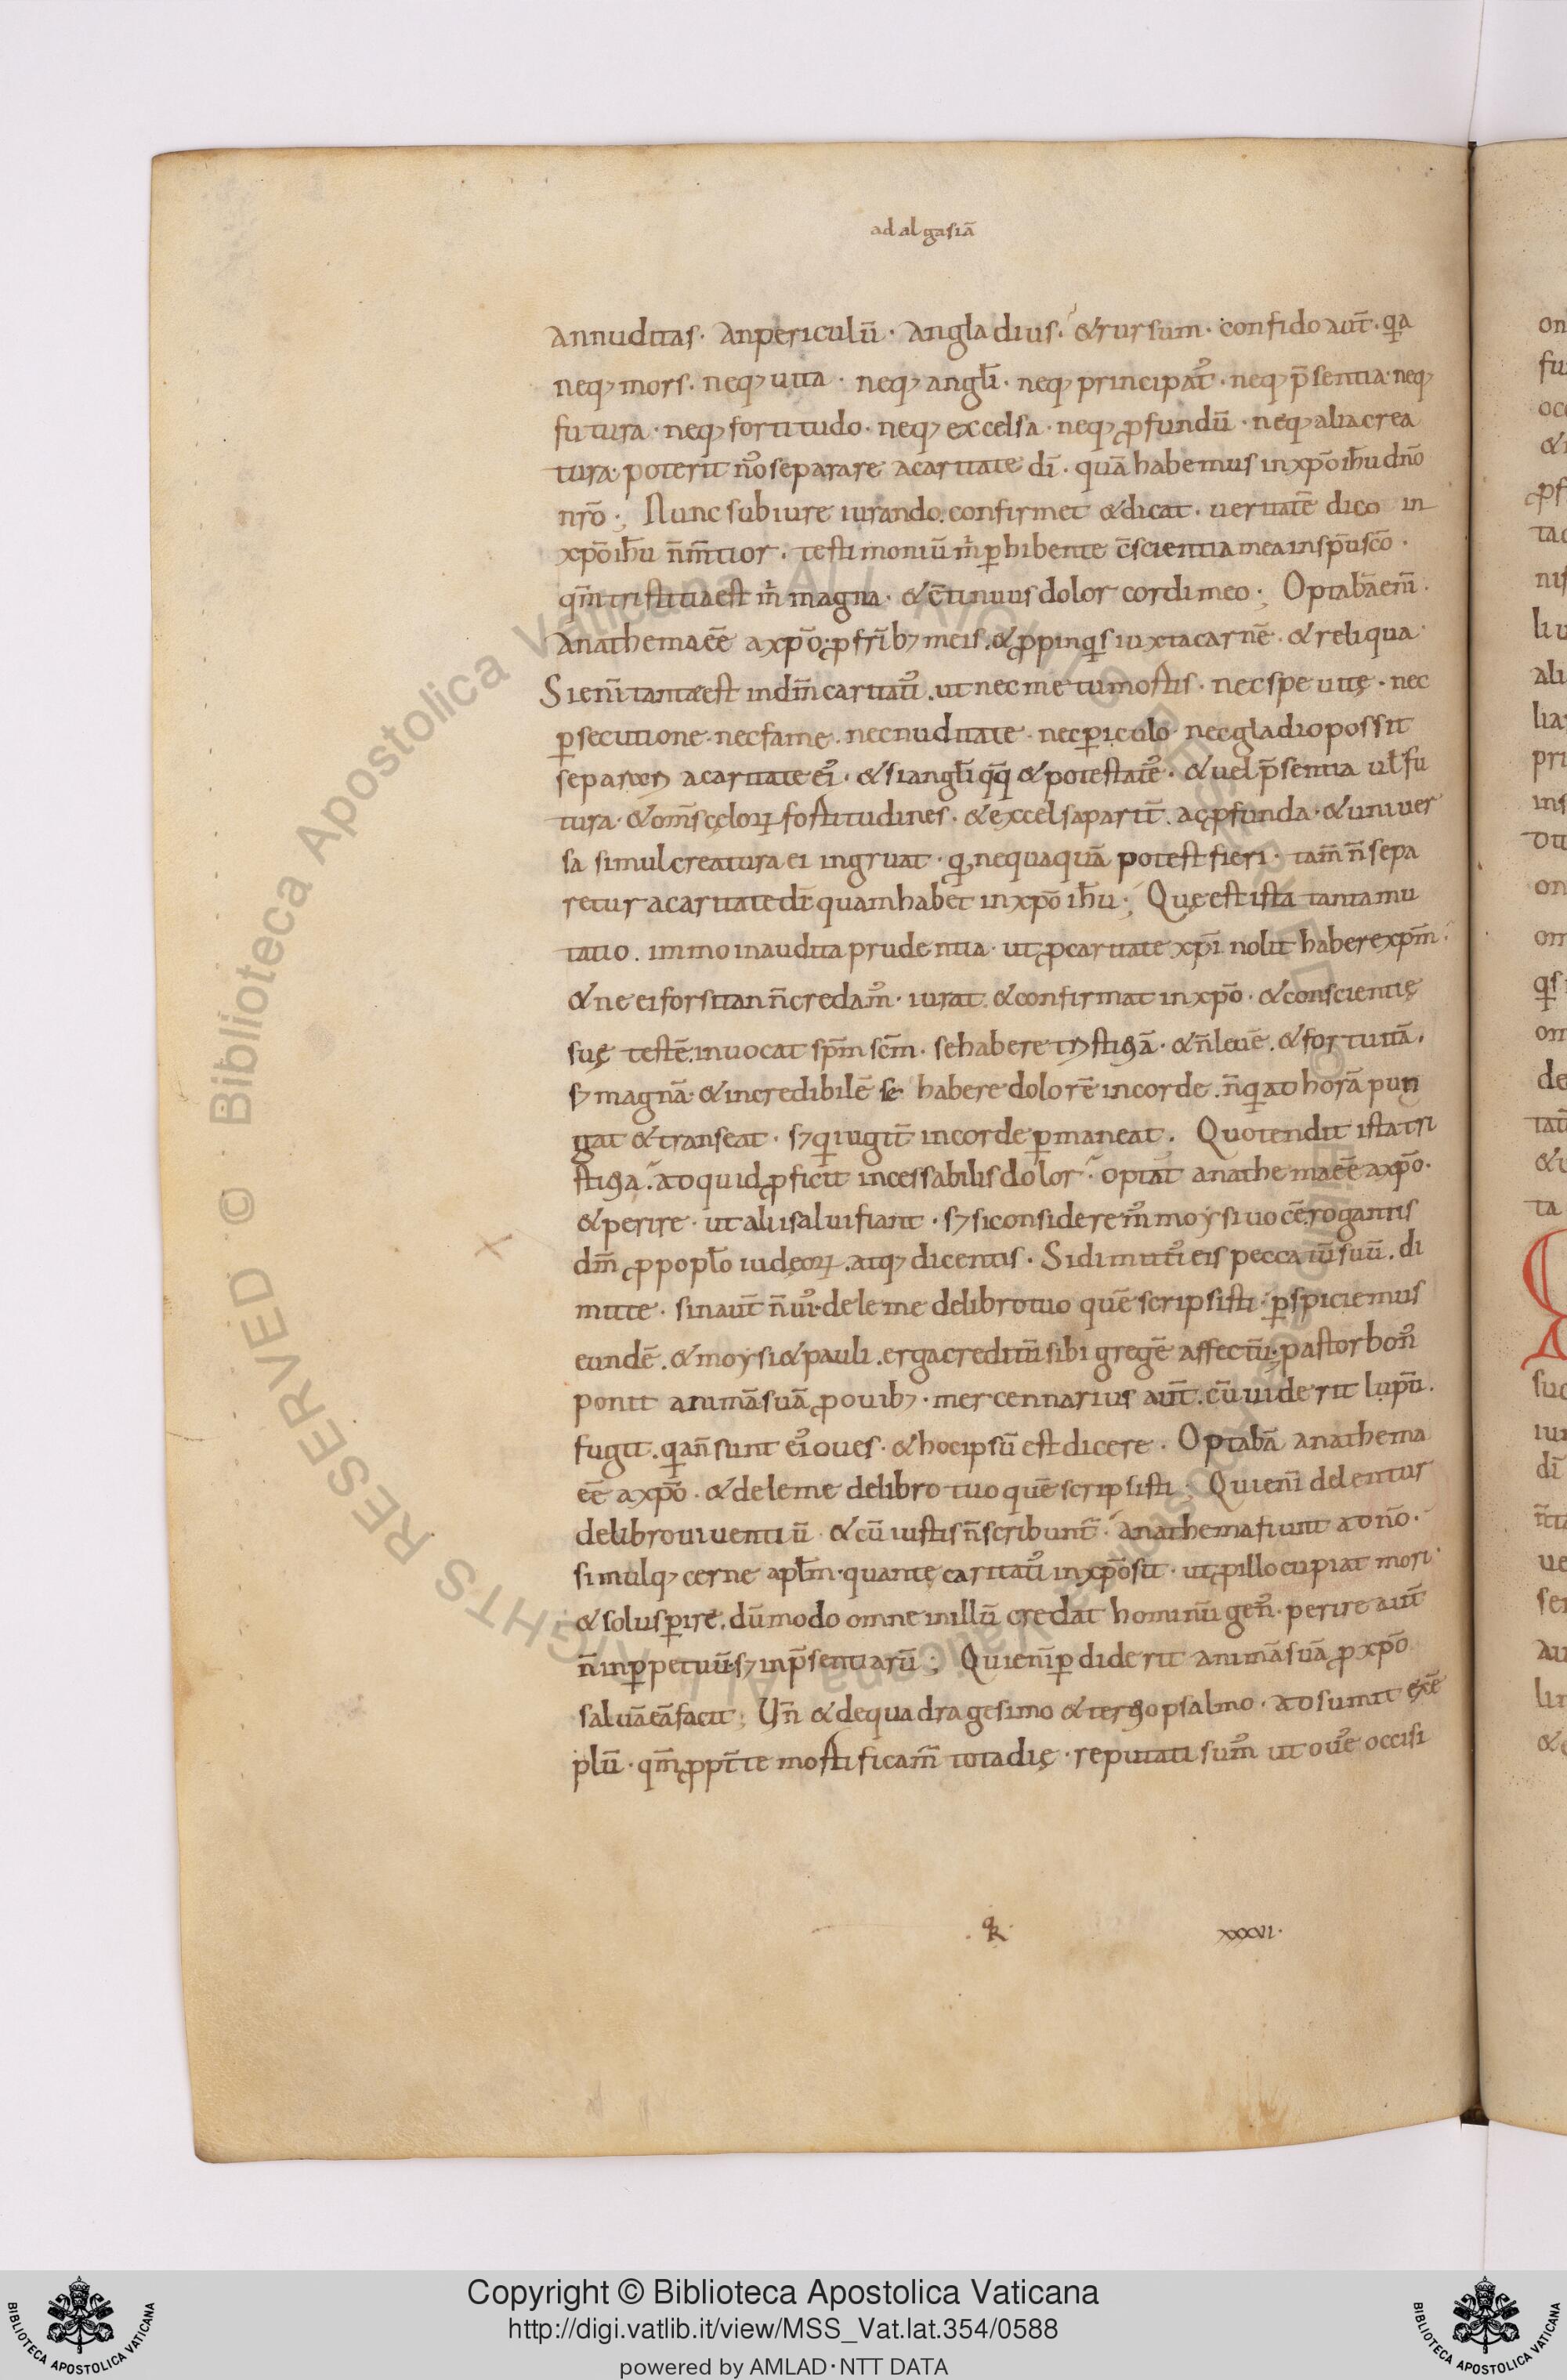 ad algasiā
An nuditas · An periculū · An gladius · & rursum · confido aut̄ · qa
neq; mors · neq; uita · neq; angl̄i · neq; principat᾿ · neq; p̄sentia · neq;
futura · neq; fortitudo · neq; excelsa · neq; ꝓfundū · neq; alia crea
tura · poterit n᾿o separare a caritate dī · quā habemus in xp̄o ih̄u dn̄o
nr̄o ; Nunc sub iure iurando confirmet & dicat · ueritatē dico in
xp̄o ih̄u n̄ m̄tior · testimoniū m̄ ꝑhibente c̄scientia mea in sp̄u sc̄o ·
qm̄ tristitia est m̄ magna · & c̄tinuus dolor cordi meo ; Optabā eni̅ ·
Anathema eē̄ a xp̄o · ꝓ fr̄ib; meis · & ꝓpinqis iuxta carnē · & reliqua ·
Si eni̅ tanta est in dm̄ caritatis᾿ · ut nec metu mortis · nec spe uitę · nec
ꝑsecutione · nec fame · nec nuditate · nec ꝑiculo · nec gladio possit
separari a caritate ei᾿ · & si angl̄i qq̄ & potestates᾿ · & uel p̄sentia ul̄ fu
tura · & om̄s cęloꝝ fortitudines · & excelsa parit̄ · ac ꝓfunda · & uniuer
sa simul creatura ei ingruat · qd nequaquā potest fieri · tam̄ n̄ sepa
retur a caritate dī quam habet in xp̄o ih̄u ; Quę est ista tanta mu
tatio · immo inaudita prudentia · ut ꝓ caritate xp̄i nolit habere xp̄m ·
& ne ei forsitan n̄ credam᾿ · iurat & confirmat in xp̄o · & conscientię
suę testē inuocat sp̄m sc̄m · se habere tristitiā · & n̄ leuē · & fortuitā ·
s; magnā · & incredibilē se habere dolorē in corde · n̄ q ad horā pun
gat & transeat · s; q iugit̄ in corde ꝑmaneat · Quo tendit ista tri
stitia · ad quid ꝓficit incessabilis dolor · optat anathema eē̄ a xp̄o ·
& perire · ut alii salui fiant · s; si considerem᾿ moysi uocē rogantis
dm̄ ꝓ popl̄o iudęoꝝ · atq; dicentis · Si dimittis eis peccatū suū · di
mitte · sin aut̄ n̄ uis · dele me de libro tuo quē scripsisti · ꝑspiciemus
eundē · & moysi & pauli · erga creditū sibi gregē affectū · pastor bon᾿
ponit animā suā ꝓ ouib; · mercennarius aut̄ · cū uiderit lupū ·
fugit · qa n̄ sunt ei᾿ oues · & hoc ipsū est dicere · Optabā anathema
eē̄ a xp̄o · & dele me de libro tuo quē scripsisti ; Qui eni̅ delentur
de libro uiuentiū · & cū iustis n̄ scribunt᾿ · anathema fiunt a dn̄o ·
simulq; cerne apl̄m · quantę caritatis in xp̄o sit · ut ꝓ illo cupiat mori ·
& solus ꝑire · dūmodo omne in illū credat hominū gen᾿ · perire aut̄
n̄ in ꝑpetuū · s; in p̄sentiarū ; Qui eni̅ ꝑdiderit animā suā ꝓ xp̄o
saluā eā facit ; Un̄ & de quadragesimo & tertio psalmo · adsumit exē
plū · qm̄ ꝓpt̄ te mortificam᾿ tota die · reputati sum᾿ ut oues occisi
xxxvi·
Copyright © Biblioteca Apostolica Vaticana
http://digi.vatlib.it/view/MSS_Vat.lat.354/0588
powered by AMLAD·NTT DATA